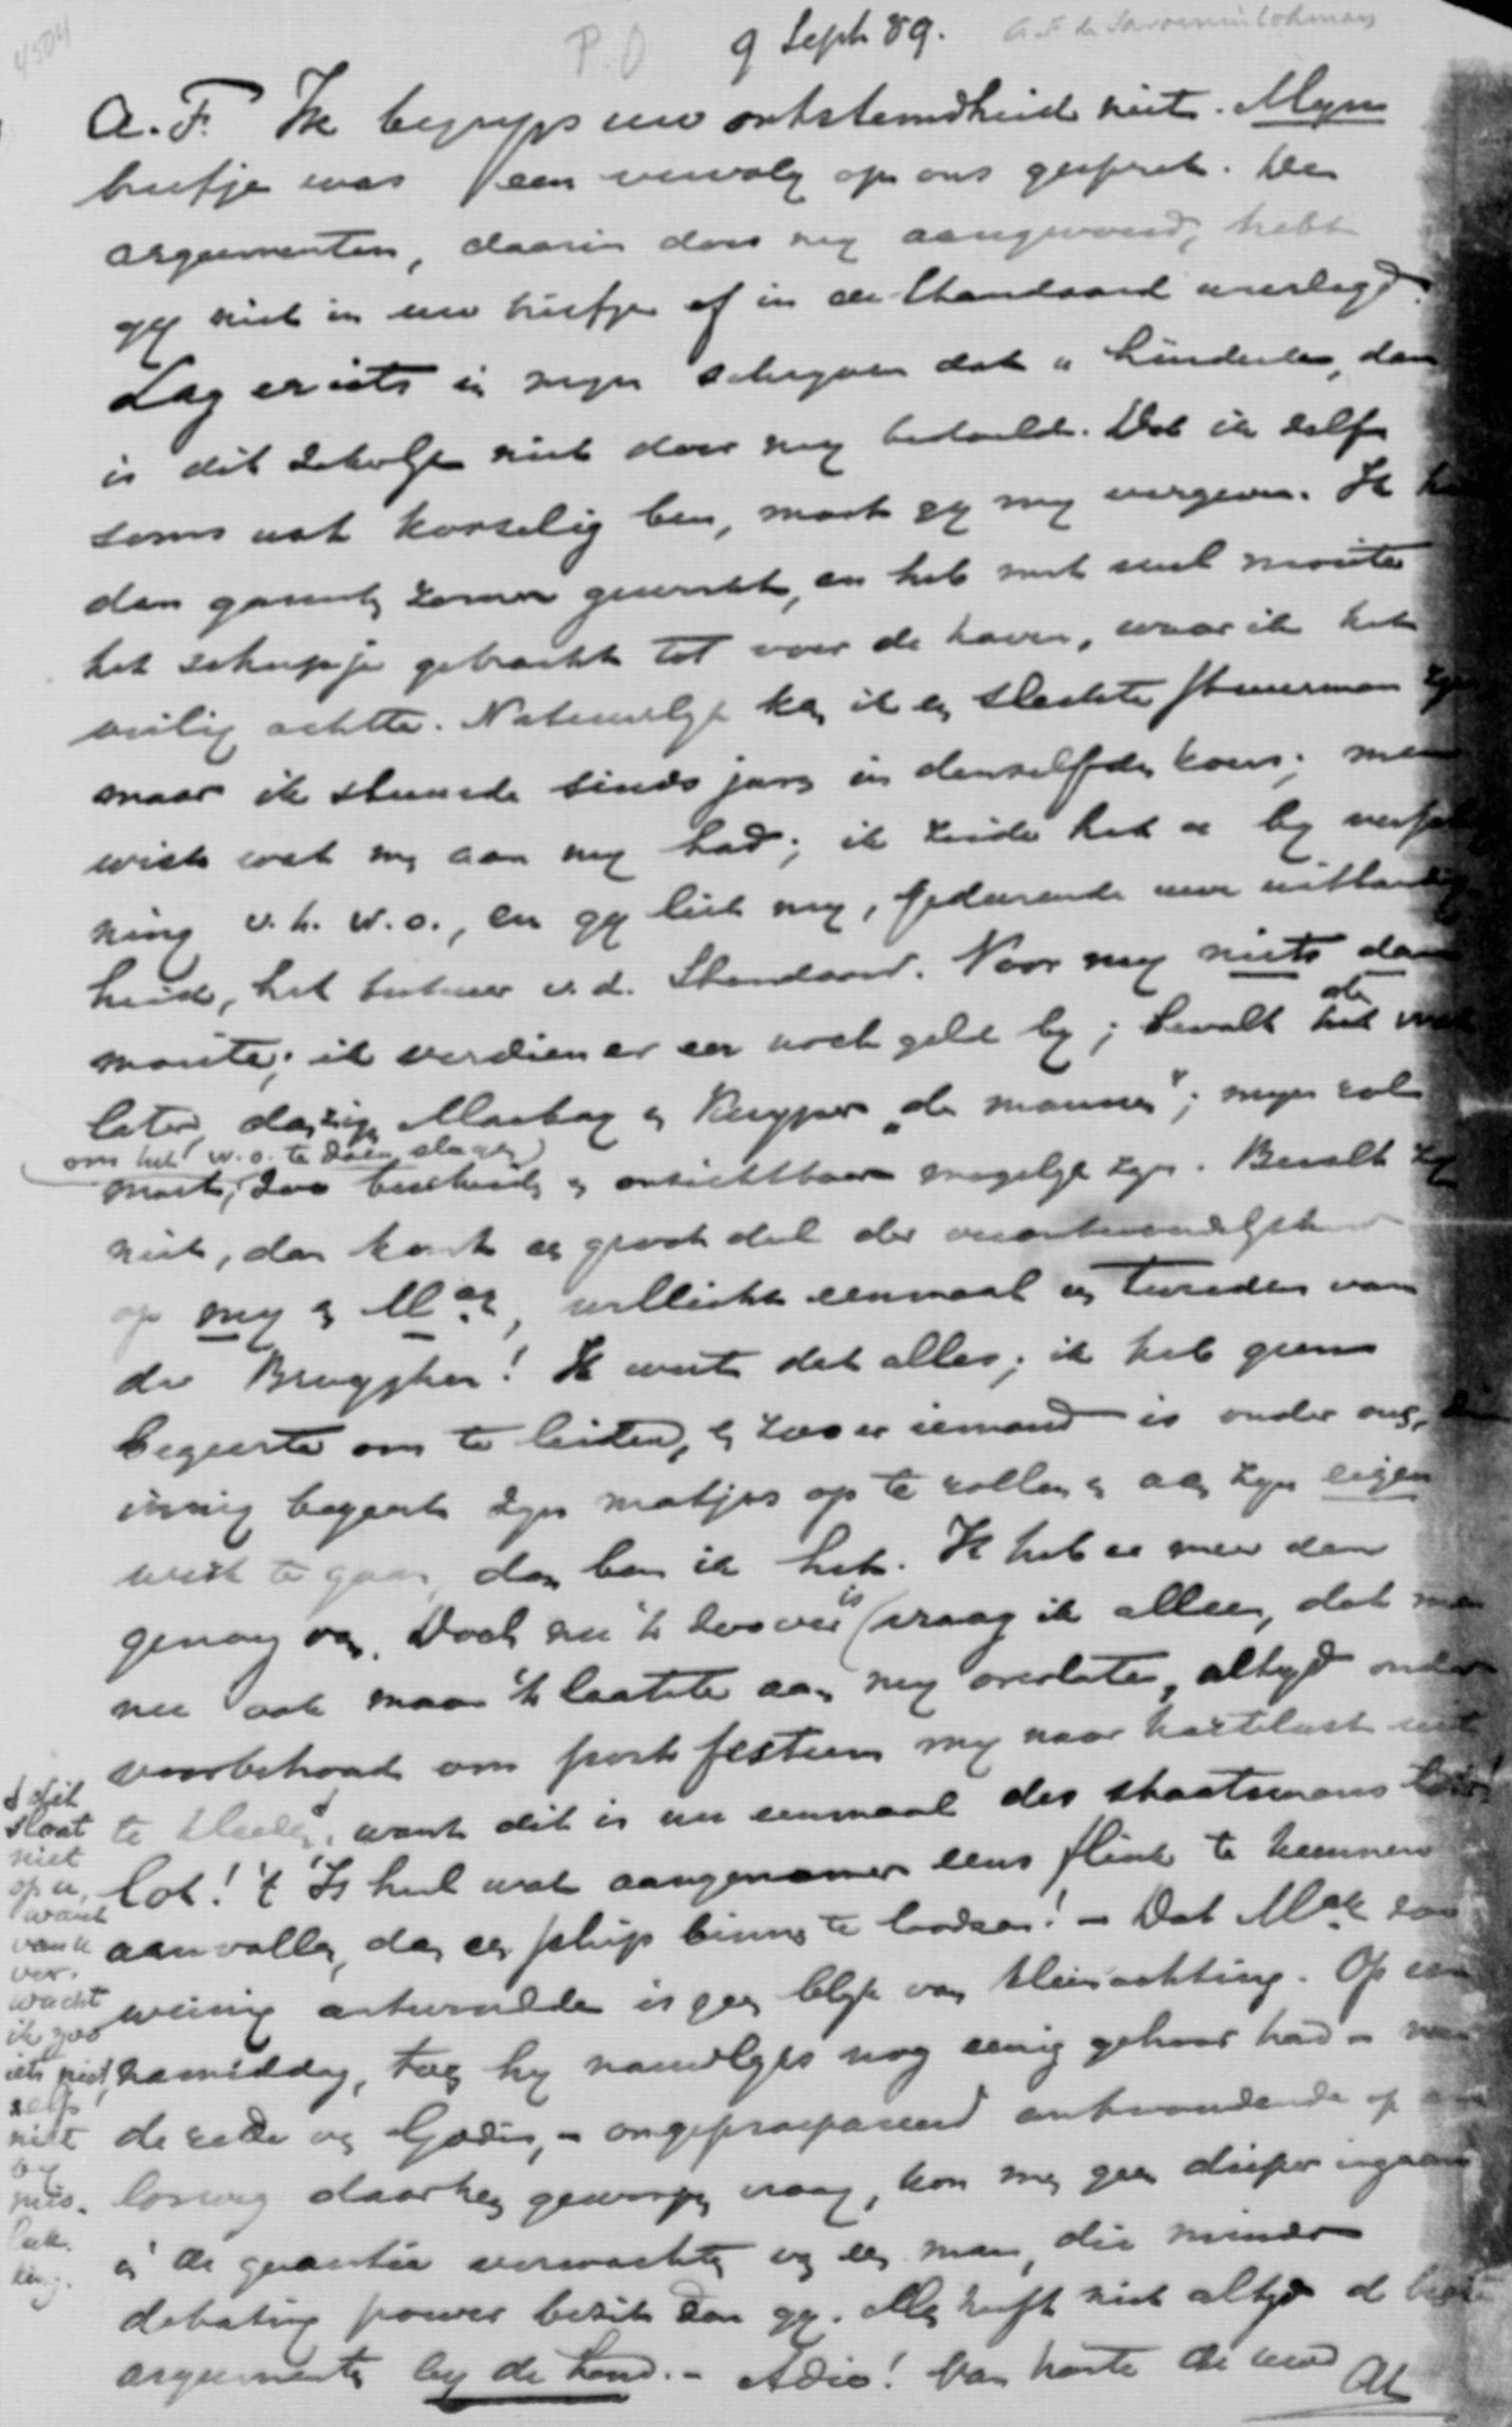 4504
P.O 9 Sept 89. A.F. de Savornin Lohman
A.F. Ik begryp uw ontstemdheid niet. Myn
briefje was een vervolg op ons gesprek. De
argumenten, daarin door my aangevoerd, hebt
gy niet in uw briefje of in de Standaard weerlegd.
Lag er iets in myn schryven dat u hinderde, dan
is dit stellig niet door my bedoeld. Dat ik zelf
soms wat korzelig ben, moet gy my vergeven. Ik heb
den ganschen zomer gewerkt, en heb met veel moeite
het scheepje gebracht tot voor de haven, waar ik het
veilig achtte. Natuurlyk kan ik een slechte stuurman zyn
maar ik stuurde sinds jaren in denzelfden koers; men
wist wat men aan my had; ik zeide het u by
v.h. w.o., en gy liet my, gedurende uwe uitlandig
heid, het bestuur v.d. Standaard. Voor my niets dan
moeite; ik verdien er eer noch geld by; bevalt het de
later, dan zyn Mackay en Kuyper „de mannen"; myn rol
(om het w.o. te doen slagen)
moet, zoo bescheiden en onzichtbaar mogelyk zyn. Bevalt zy
niet, dan komt een groot deel der verantwoordelykheid
op my en Mac, wellicht eenmaal een tweeden van
der Brugghen! Ik weet dat alles; ik heb geene
begeerte om te leiden, en zoo er iemand is onder ons, die
innig begeert zyn matjes op te rollen en aan zyn eigen
werk te gaan, dan ben ik het. Ik heb er meer dan
genoeg van. Doch nu 't zoover is vraag ik alleen, dat men
nu ook maar 't laatste aan my overlate, altyd onder
voorbehoud om post festum my naar hartelust uit
te kleeden, want dit is nu eenmaal des staatsmans
lot! 't Is heel wat aangenamer eens flink te kunnen
aanvallen, dan een schip binnen te loodsen! – Dat Mack zoo
weinig antwoordde is geen blyk van kleinachting. Op een
namiddag, toen hy nauwlyks nog eenig gehoor had – na
de rede van Godin, – ongeprepareerd antwoordende op een
losweg daarheen geworpen vraag, kon men geen dieper ingaan
in de quaestie verwachten van een man, die minder
debating power bezit dan gy. Men heeft niet altyd de beste
argumenten by de hand. – Adio! Van harte de uwe
AL
dit
slaat
niet
op u,
want
van u
ver-
wacht
ik zoo
iets niet,
zelfs
niet
by
mis-
luk-
king.